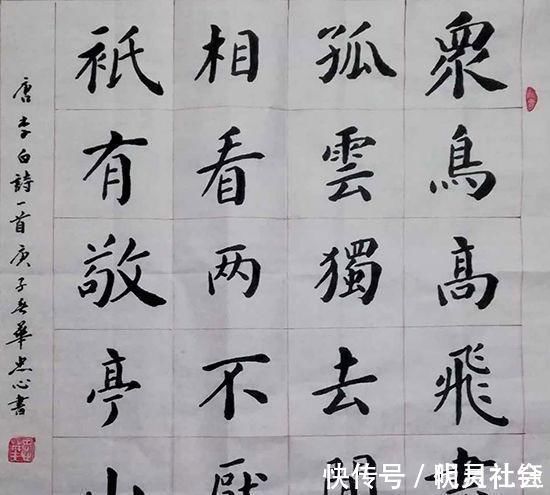 衆鳥高飛
孤雲獨去
相看两不厭
祇有敬亭山
唐李白詩一首庚子春華忠心書
快传号／